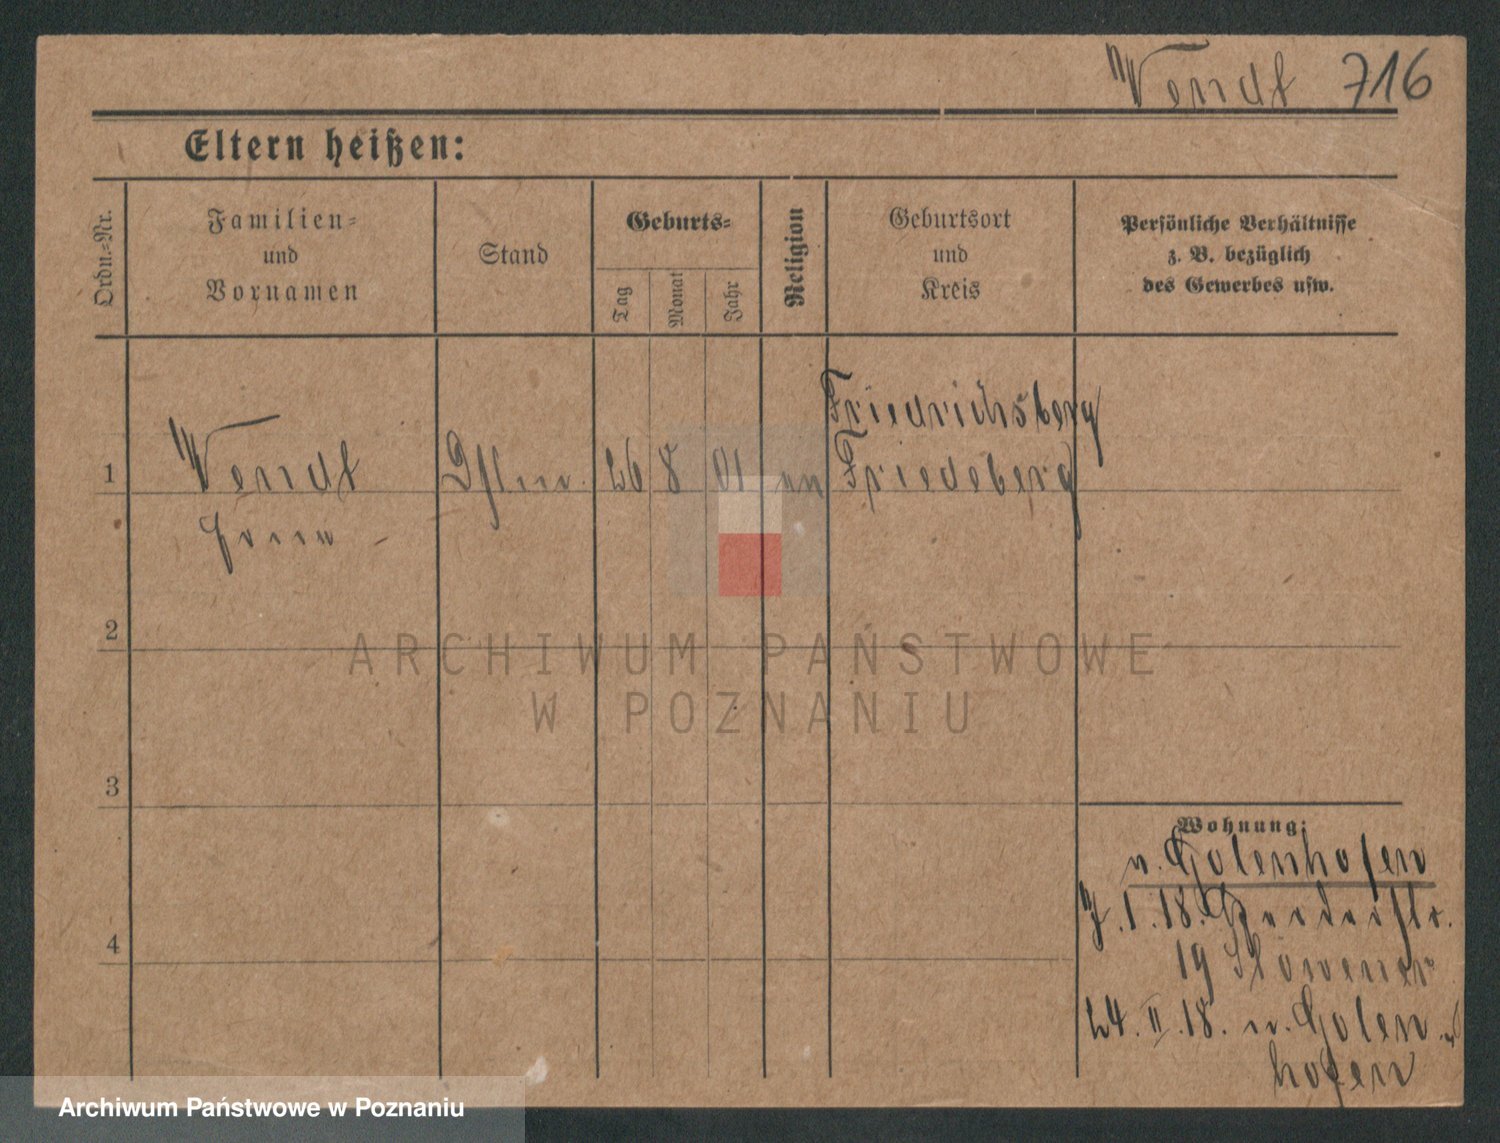 Wendt 716
Eltern heißen:
Ordn.-Nr.
Familien-
und
Vornamen
Stand
Geburts-
Tag
Monat
Jahr
Religion
Geburtsort
und
Kreis
Persönliche Verhältnisse
z. B. bezüglich
des Gewerbes usw.
Friedrichsberg
1 Wendt 26 8 01 Friedeberg
2
3
4
Wohnung:
n. Golenhofen
1.18.
19
24.II.18. n. Golen
hofen
ARCHIWUM PAŃSTWOWE
W POZNANIU
Archiwum Państwowe w Poznaniu